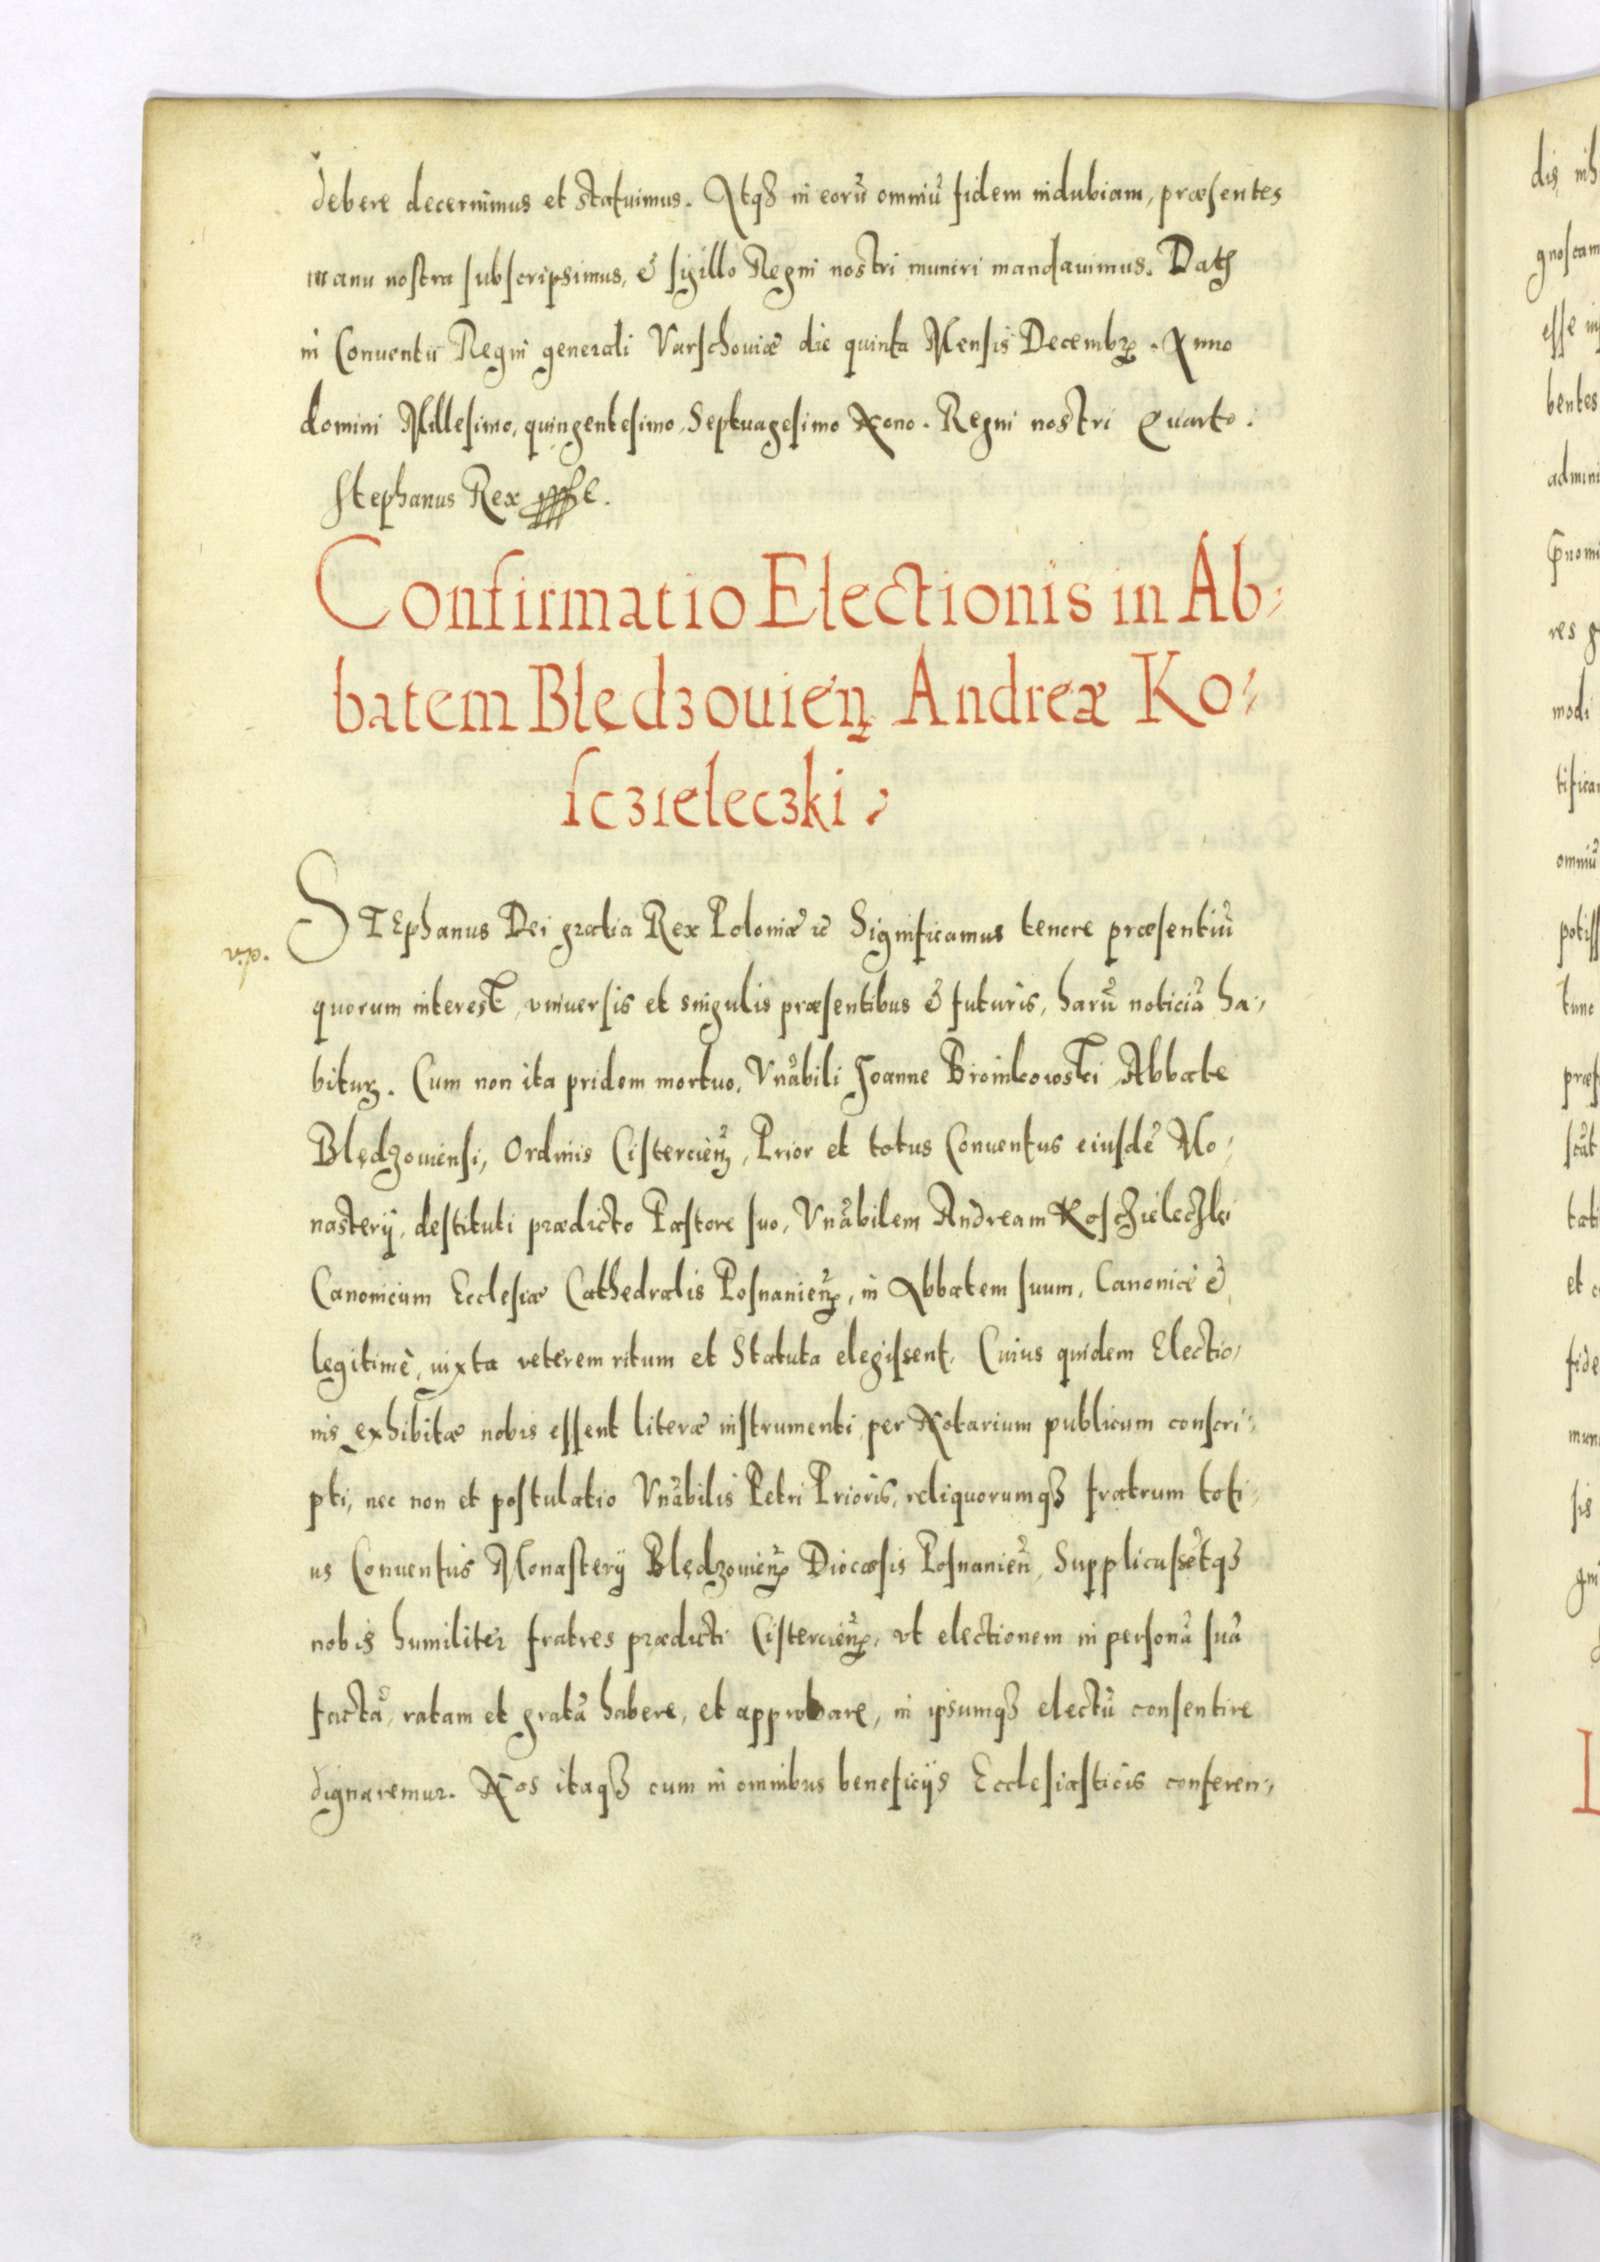 debere decernimus et statuimus. Atq3 in eorū omniū fidem indubiam, præsentes
manu nostra subscripsimus, & sigillo Regni nostri muniri mandauimus. Datꝭ
in Conuentu Regni generali Varschouiæ die quinta Mensis Decembꝝ. Anno
domini Millesimo, quingentesimo, Septuagesimo Nono. Regni nostri Quarto.
Stephanus Rex
Confirmatio Electionis in Ab-
batem Blędzouieñ Andreæ Ko-
sczieleczki
STEphanus Dei gratia Rex Poloniæ &c Significamus tenore præsentiū
quorum interest, vniuersis et singulis præsentibus & futuris, harū noticiā ha-
bituꝝ. Cum non ita pridem mortuo, Vnābili Joanne Broinkowski Abbate
Blędzouiensi, Ordinis Cistercieñ, Prior et totus Conuentus eiusdē Mo-
nasterij, destituti prædicto Pastore suo, Vnābilem Andream Kosczieleczki
Canonicum Ecclesiæ Cathedralis Posnanieñ, in Abbatem suum, Canonicè &
legitimè, iuxta veterem ritum et Statuta elegissent, Cuius quidem Electio-
nis exhibitæ nobis essent literæ instrumenti per Notarium publicum conscri-
pti, nec non et postulatio Vnābilis Petri Prioris, reliquorumq3 fratrum toti-
us Conuentus Monasterij Blędzouieñ Diocæsis Posnanieñ, Supplicassētq3
nobis humiliter fratres prædicti Cistercieñ, vt electionem in personā suā
factā, ratam et gratā habere, et approbare, in ipsumq3 electū consentire
dignaremur. Nos itaq3 cum in omnibus beneficijs Ecclesiasticis conferen-